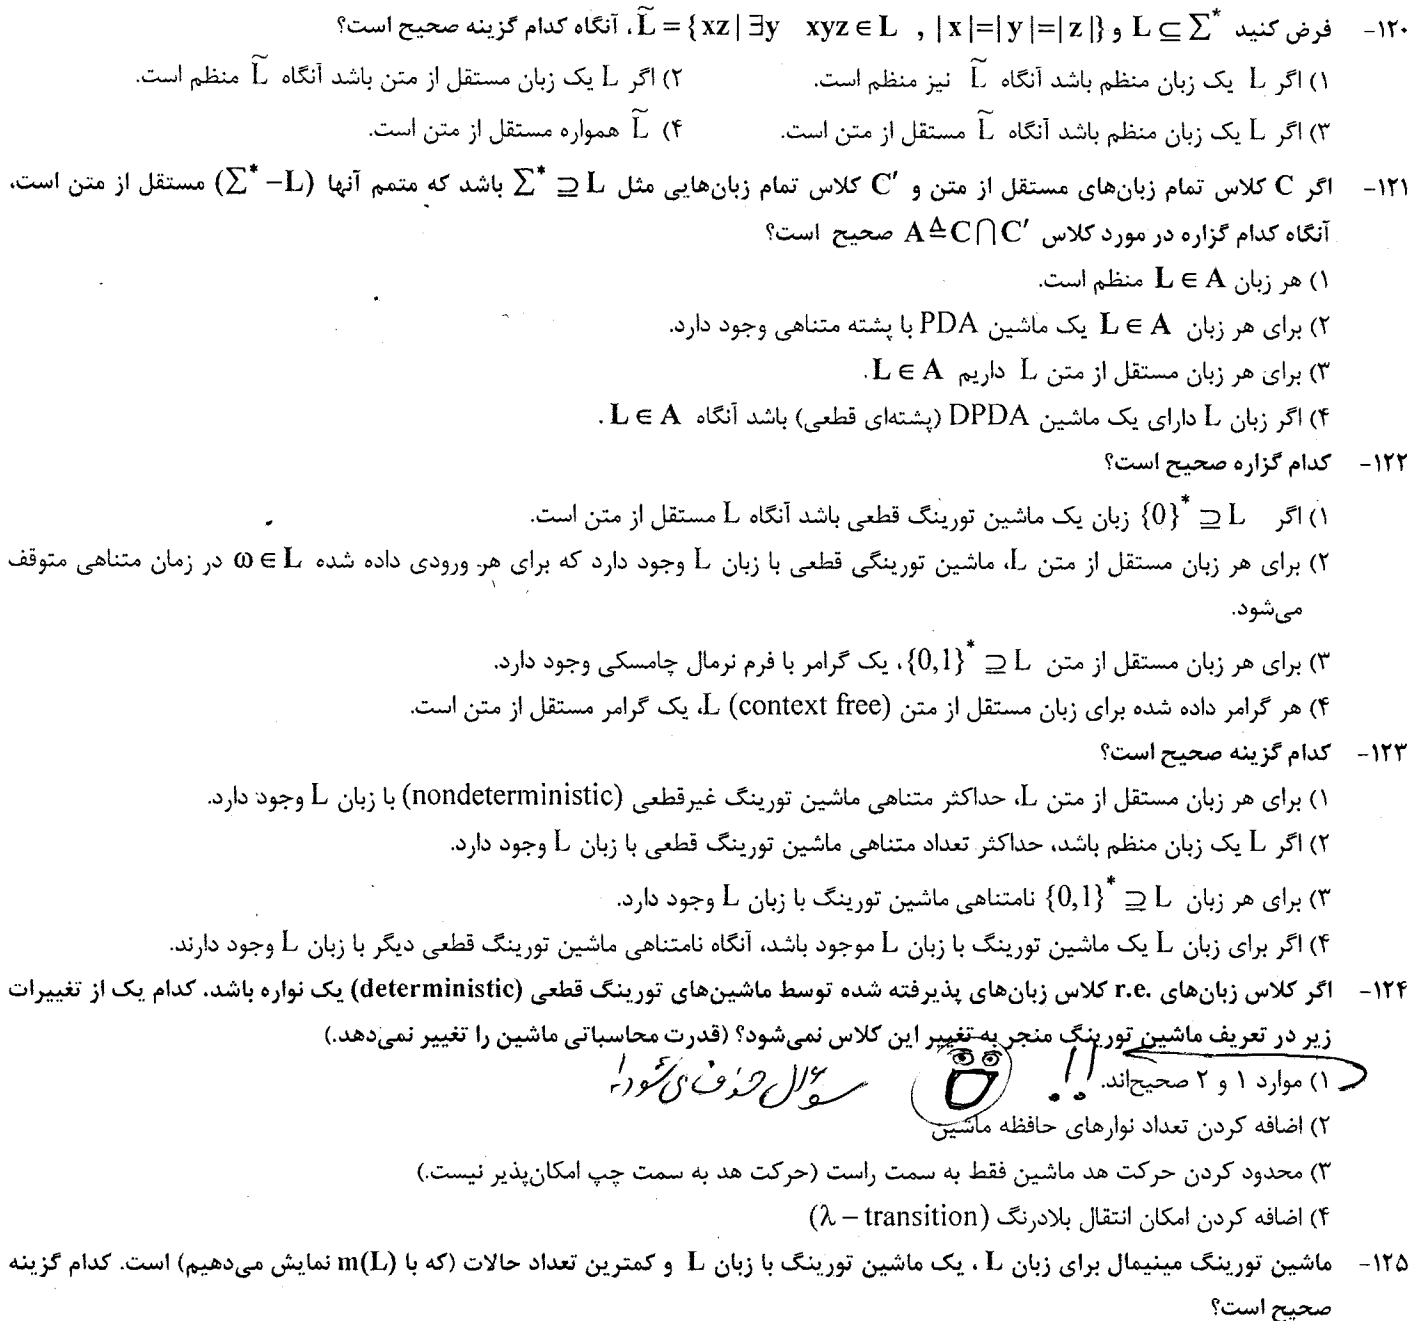 ۱۲۰- فرض کنید L ⊆ Σ* و L̃ = {xz | ∃y xyz ∈ L , |x|=|y|=|z|}، آنگاه کدام گزینه صحیح است؟
۱) اگر L یک زبان منظم باشد آنگاه L̃ نیز منظم است. ۲) اگر L یک زبان مستقل از متن باشد آنگاه L̃ منظم است.
۳) اگر L یک زبان منظم باشد آنگاه L̃ مستقل از متن است. ۴) L̃ همواره مستقل از متن است.
۱۲۱- اگر C کلاس تمام زبان‌های مستقل از متن و C′ کلاس تمام زبان‌هایی مثل L ⊆ Σ* باشد که متمم آنها (Σ* – L) مستقل از متن است،
آنگاه کدام گزاره در مورد کلاس A ≜ C ∩ C′ صحیح است؟
۱) هر زبان L ∈ A منظم است.
۲) برای هر زبان L ∈ A یک ماشین PDA با پشته متناهی وجود دارد.
۳) برای هر زبان مستقل از متن L داریم L ∈ A.
۴) اگر زبان L دارای یک ماشین DPDA (پشته‌ای قطعی) باشد آنگاه L ∈ A.
۱۲۲- کدام گزاره صحیح است؟
۱) اگر L ⊆ {0}* زبان یک ماشین تورینگ قطعی باشد آنگاه L مستقل از متن است.
۲) برای هر زبان مستقل از متن L، ماشین تورینگی قطعی با زبان L وجود دارد که برای هر ورودی داده شده ω ∈ L در زمان متناهی متوقف
می‌شود.
۳) برای هر زبان مستقل از متن L ⊆ {0,1}*، یک گرامر با فرم نرمال چامسکی وجود دارد.
۴) هر گرامر داده شده برای زبان مستقل از متن (context free) L، یک گرامر مستقل از متن است.
۱۲۳- کدام گزینه صحیح است؟
۱) برای هر زبان مستقل از متن L، حداکثر متناهی ماشین تورینگ غیرقطعی (nondeterministic) با زبان L وجود دارد.
۲) اگر L یک زبان منظم باشد، حداکثر تعداد متناهی ماشین تورینگ قطعی با زبان L وجود دارد.
۳) برای هر زبان L ⊆ {0,1}* نامتناهی ماشین تورینگ با زبان L وجود دارد.
۴) اگر برای زبان L یک ماشین تورینگ با زبان L موجود باشد، آنگاه نامتناهی ماشین تورینگ قطعی دیگر با زبان L وجود دارند.
۱۲۴- اگر کلاس زبان‌های r.e. کلاس زبان‌های پذیرفته شده توسط ماشین‌های تورینگ قطعی (deterministic) یک نواره باشد. کدام یک از تغییرات
زیر در تعریف ماشین تورینگ منجر به تغییر این کلاس نمی‌شود؟ (قدرت محاسباتی ماشین را تغییر نمی‌دهد.)
۱) موارد ۱ و ۲ صحیح‌اند. !! سوال حذف می‌شود!
۲) اضافه کردن تعداد نوارهای حافظه ماشین
۳) محدود کردن حرکت هد ماشین فقط به سمت راست (حرکت هد به سمت چپ امکان‌پذیر نیست.)
۴) اضافه کردن امکان انتقال بلادرنگ (λ – transition)
۱۲۵- ماشین تورینگ مینیمال برای زبان L، یک ماشین تورینگ با زبان L و کمترین تعداد حالات (که با m(L) نمایش می‌دهیم) است. کدام گزینه
صحیح است؟